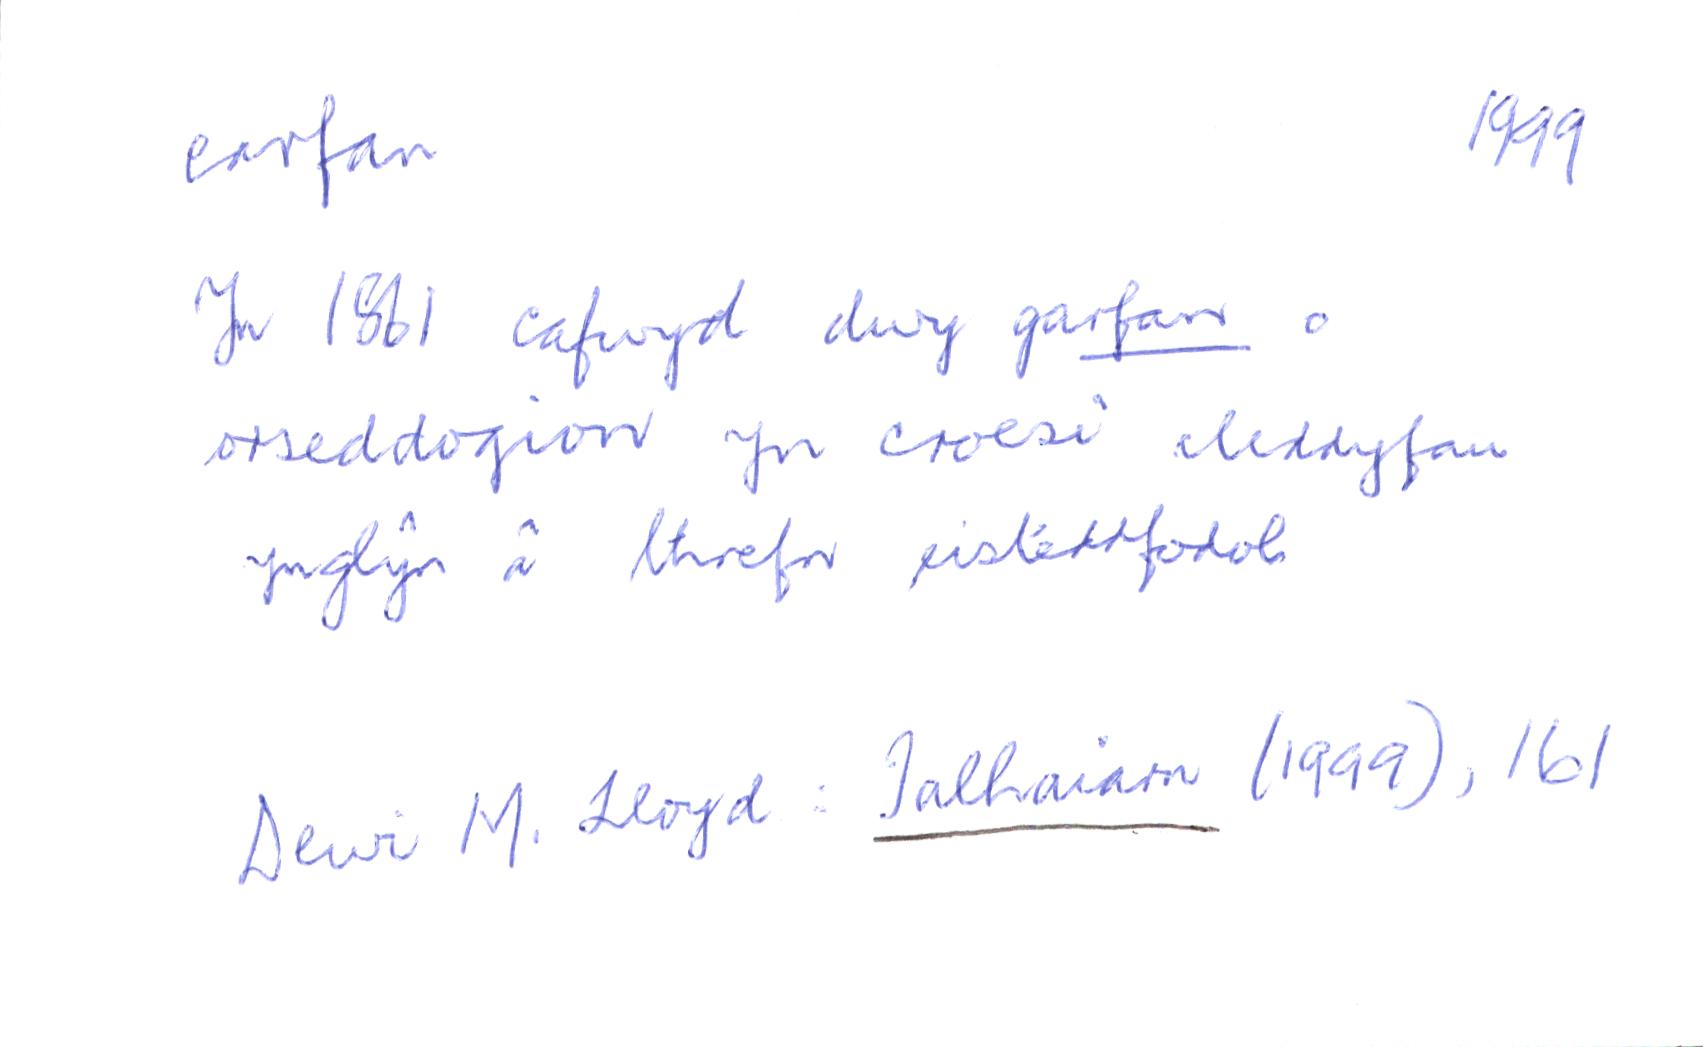 carfan 1999
Yn 1861 cafwyd dwy garfan o
orseddogion yn croesi cleddyfau
ynglŷn â threfn eisteddfodol
Dewi M. Lloyd : Talhaiarn (1999), 161